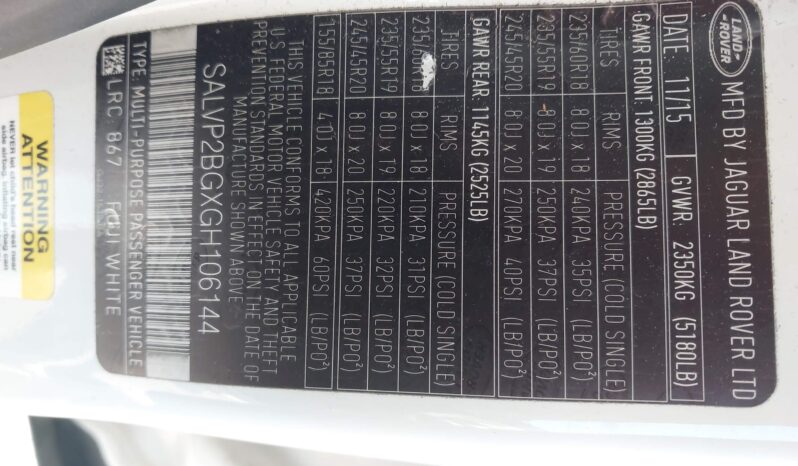 LAND
ROVER
MFD BY JAGUAR LAND ROVER LTD
DATE: 11/15 GVWR: 2350KG (5180LB)
GAWR FRONT: 1300KG (2865LB)
TIRES RIMS PRESSURE (COLD SINGLE)
235/60R18 8.0J x 18 240KPA 35PSI (LB/PO²)
235/55R19 8.0J x 19 250KPA 37PSI (LB/PO²)
245/45R20 8.0J x 20 270KPA 40PSI (LB/PO²)
GAWR REAR: 1145KG (2525LB)
TIRES RIMS PRESSURE (COLD SINGLE)
235/60R18 8.0J x 18 210KPA 31PSI (LB/PO²)
235/55R19 8.0J x 19 220KPA 32PSI (LB/PO²)
245/45R20 8.0J x 20 250KPA 37PSI (LB/PO²)
155/85R18 4.0J x 18 420KPA 60PSI (LB/PO²)
THIS VEHICLE CONFORMS TO ALL APPLICABLE
U.S FEDERAL MOTOR VEHICLE SAFETY AND THEFT
PREVENTION STANDARDS IN EFFECT ON THE DATE OF
MANUFACTURE SHOWN ABOVE
SALVP2BGXGH106144
TYPE: MULTI-PURPOSE PASSENGER VEHICLE
LRC 867 FUJI WHITE
WARNING
ATTENTION
NEVER let child's head rest near
side airbag, inflating airbag can